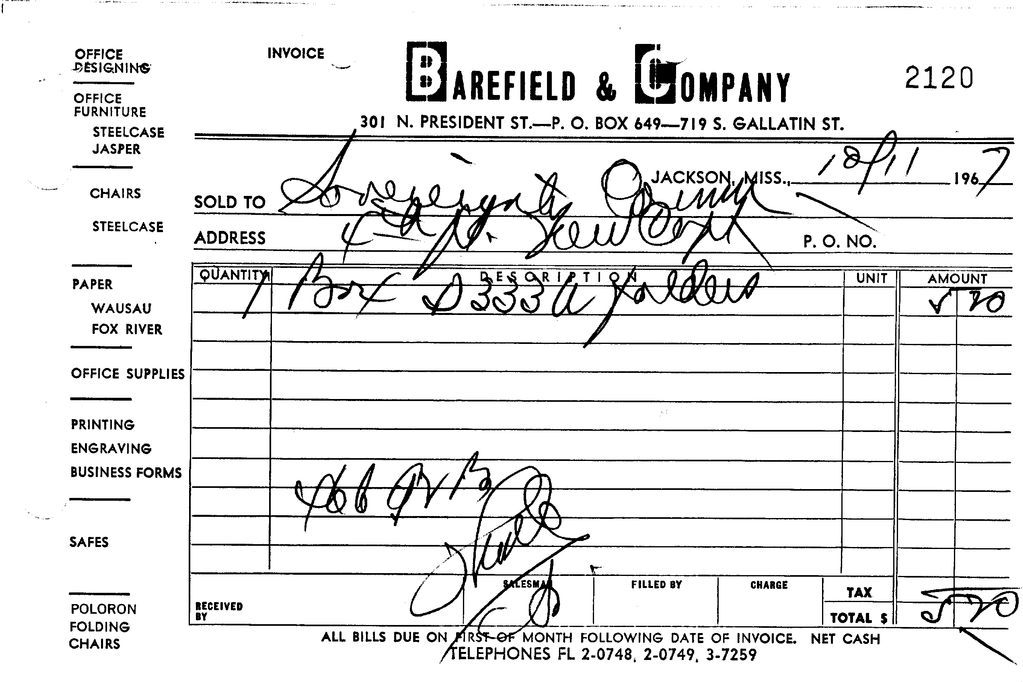 OFFICE DESIGNING
OFFICE FURNITURE
STEELCASE
JASPER
CHAIRS
STEELCASE
PAPER
WAUSAU
FOX RIVER
OFFICE SUPPLIES
PRINTING
ENGRAVING
BUSINESS FORMS
SAFES
POLORON FOLDING CHAIRS
INVOICE
BAREFIELD & COMPANY
2120
301 N. PRESIDENT ST.—P. O. BOX 649—719 S. GALLATIN ST.
JACKSON, MISS., 10/11 1967
SOLD TO Sovereignty Comm
ADDRESS New Cap P. O. NO.
QUANTITY DESCRIPTION UNIT AMOUNT
1 Box S333A folders 5 20
SALESMAN FILLED BY CHARGE TAX
RECEIVED BY TOTAL $ 5 20
ALL BILLS DUE ON FIRST OF MONTH FOLLOWING DATE OF INVOICE. NET CASH
TELEPHONES FL 2-0748, 2-0749, 3-7259